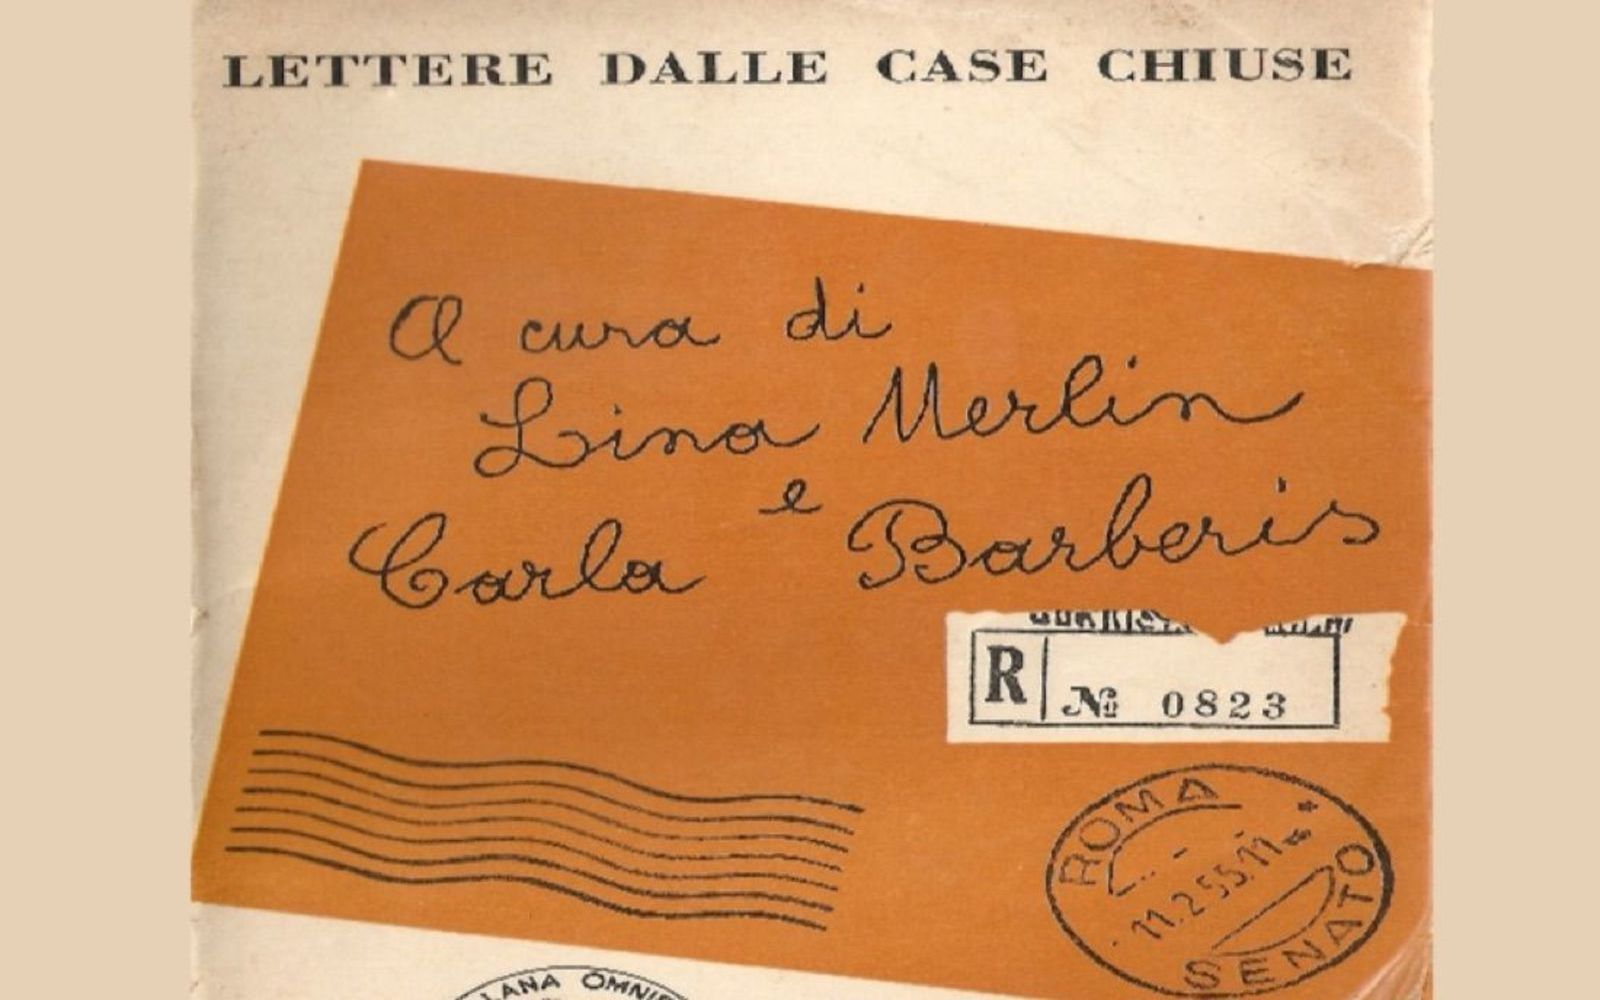 LETTERE DALLE CASE CHIUSE
A cura di
Lina Merlin
e
Carla Barberis
R
№ 0823
ROMA
11.2.55.11
SENATO